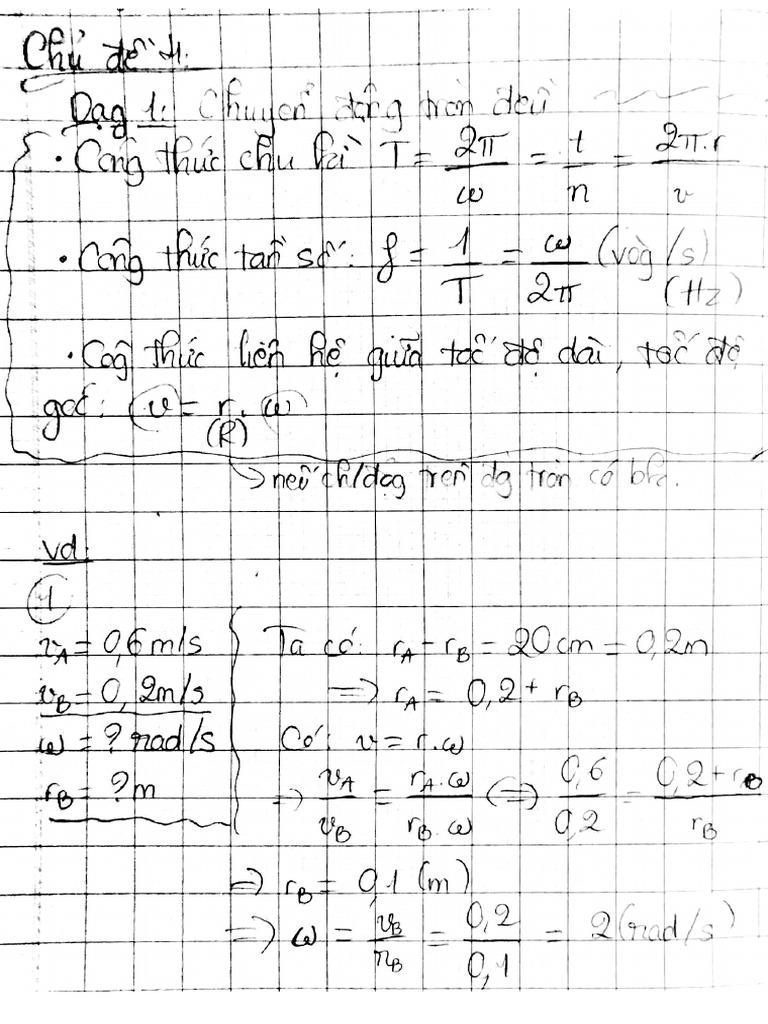 Chủ đề 4:
Dạg 1: Chuyển động tròn đều
• Công thức chu kì T = 2π/ω = t/n = 2π.r/v
• Công thức tần số: f = 1/T = ω/2π (vòg/s) (Hz)
• Côg thức liên hệ giữa tốc độ dài, tốc độ
góc: v = r. ω
(R)
→ nếu ch/độg trên đg tròn có bk.
vd:
1
v_A = 0,6m/s
v_B = 0,2m/s
ω = ? rad/s
r_B = ? m
Ta có: r_A - r_B = 20cm = 0,2m
=> r_A = 0,2 + r_B
Có: v = r.ω
=> v_A/v_B = r_A.ω/r_B.ω <=> 0,6/0,2 = 0,2 + r_B/r_B
=> r_B = 0,1 (m)
=> ω = v_B/r_B = 0,2/0,1 = 2 (rad/s)